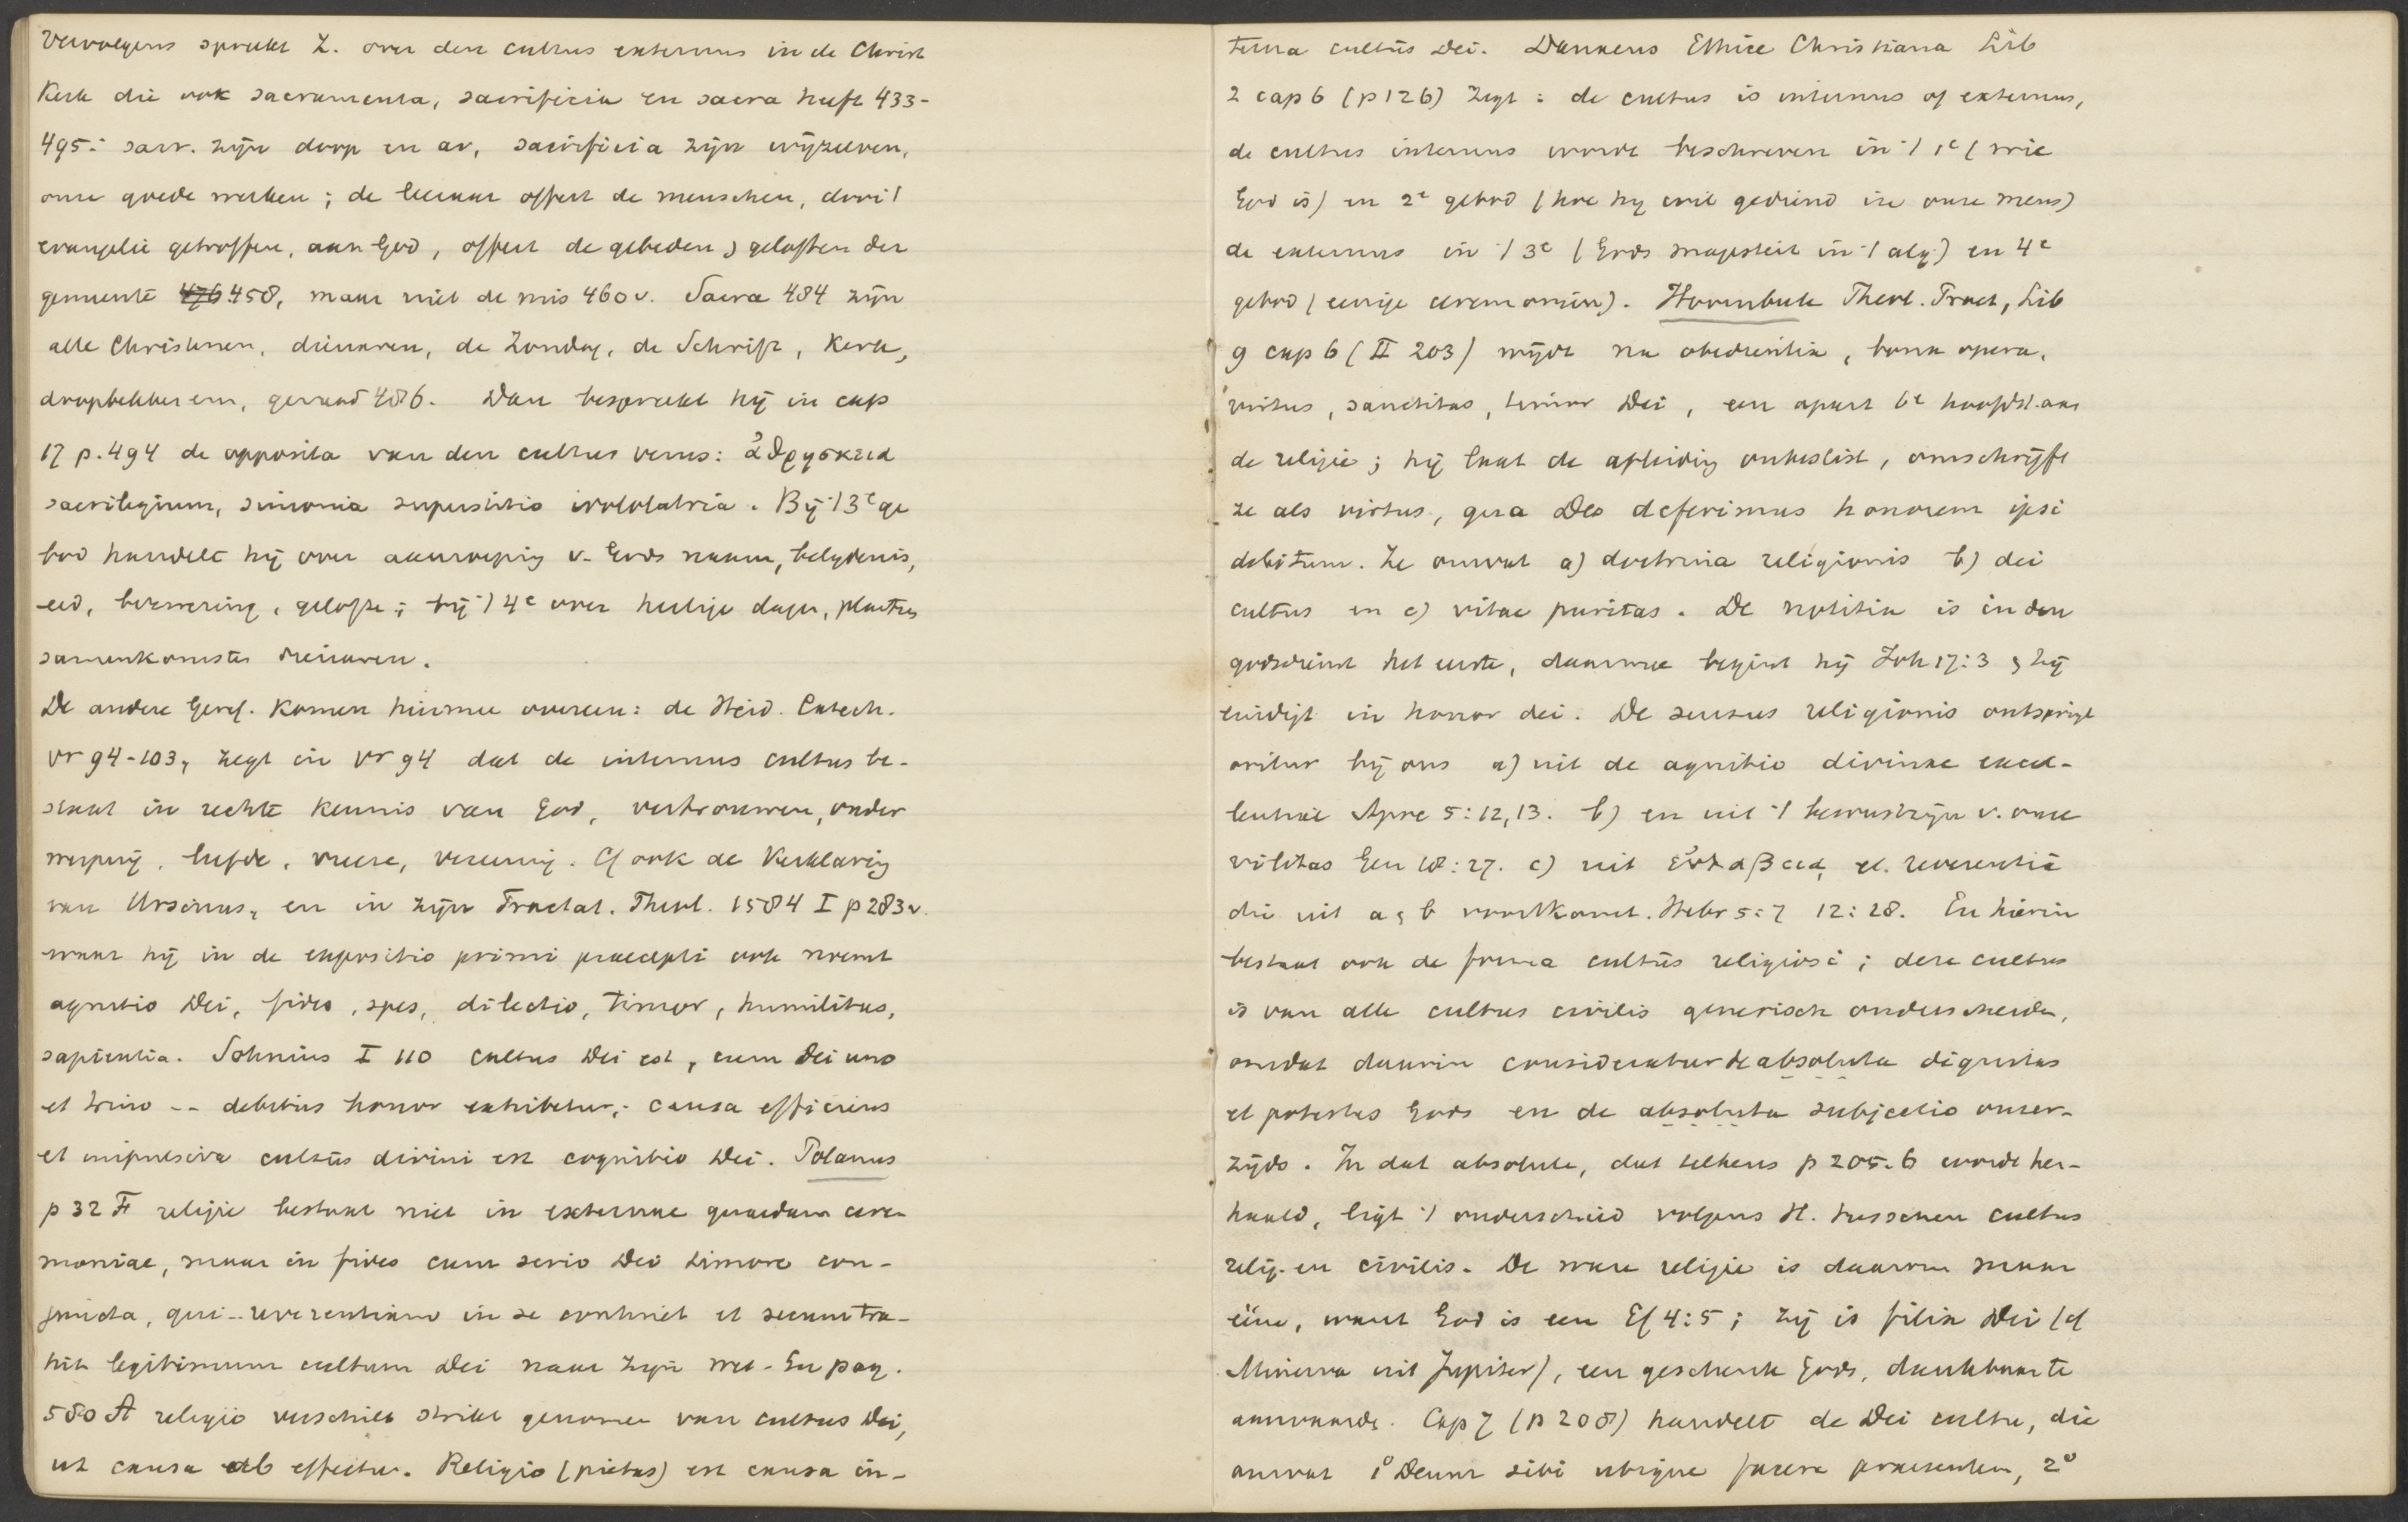 Vervolgens spreekt Z. over den cultus externus in de Christ
Kerk die ook sacramenta, sacrificia en sacra heeft 433-
495: sacr. zijn doop en av, sacrificia zijn wijzelven,
onze goede werken; de leeraar offert de menschen, door 't
evangelie getroffen, aan God, offert de gebeden & geloften der
gemeente 476 458, maar niet de mis 460v. Sacra 484 zijn
alle Christenen, dienaren, de Zondag, de Schrift, Kerk,
doopbekken enz, genaamd 486. Dan bespreekt hij in cap
17 p. 494 de opposita van den cultus verus: ἀθρησκεια
sacrilegium, simonia superstitio idololatria. Bij 't 3e ge
bod handelt hij over aanroeping v. Gods naam, belydenis,
eed, bezwering, gelofte; bij 't 4e over heilige dagen, plaatsen
samenkomsten dienaren.
De andere Geref. Komen hiermee overeen: de Heid. Catech.
vr 94-103, zegt in vr 94 dat de internus cultus be-
staat in rechte Kennis van God, vertrouwen, onder
werping, liefde, vreeze, vereering. Cf ook de Verklaring
van Ursinus, en in zijn Tractat. Theol. 1584 I p 283v.
waar hij in de expositio primi praecepti ook noemt
agnitio Dei, fides, spes, dilectio, timor, humilitas,
sapientia. Sohnius I 110 cultus Dei est, cum Dei uno
et trino -- debitus honor exhibetur; causa efficiens
et impulsiva cultūs divini est cognitio Dei. Polanus
p 32 F religie bestaat niet in externae quaedam cere-
moniae, maar in fides cum serio Dei timore con-
juncta, qui -- reverentiam in se continet et secum tra-
hit legitimum cultum Dei naar zijn wet. En pag.
580 A religio verschilt strikt genomen van cultus Dei,
ut causa ab effectu. Religio (pietas) est causa in-
terna cultūs Dei. Danaeus Ethice Christiana Lib
2 cap 6 (p 126) Zegt: de cultus is internus of externus,
de cultus internus wordt beschreven in 't 1e (wie
God is) en 2e gebod (hoe hij wil gediend in onze mens)
de externus in 't 3e (Gods majesteit in 't alg.) en 4e
gebod (eenige ceremoniën). Hoornbeek Theol. Pract, Lib
9 cap 6 (II 203) wijdt na obedientia, bona opera,
virtus, sanctitas, timor Dei, een apart 6e hoofdst. aan
de religie; hij laat de afleiding onbeslist, omschrijft
ze als virtus, qua Deo deferimus honorem ipsi
debitum. Ze omvat a) doctrina religionis b) dei
cultus en c) vitae puritas. De notitia is in den
godsdienst het eerste, daarmee begint hij Joh 17:3 & hij
eindigt in honor dei. De sensus religionis ontspringt
oritur bij ons a) uit de agnitio divinae excel-
lentiae Apoc 5:12,13. b) en uit 't bewustzijn v. onze
vilitas Gen 18:27. c) uit εὐλαβεια, et. reverentia
die uit a & b voortkomt. Hebr 5:7 12:28. En hierin
bestaat ook de forma cultūs religiosi; deze cultus
is van alle cultus civilis generisch onderscheiden,
omdat daarin consideratur de absoluta dignitas
et potestas Gods en de absoluta subjectio onzer-
zijds. In dat absolute, dat telkens p 205.6 wordt her-
haald, ligt 't onderscheid volgens H. tusschen cultus
relig. en civilis. De ware religie is daarom maar
ééne, want God is een Ef 4:5; zij is filia Dei (cf
Minerva uit Jupiter), een geschenk Gods, dankbaar te
aanvaarden. Cap 7 (p 208) handelt de Dei cultu, die
omvat 1° Deum sibi ubique facere praesentem, 2°